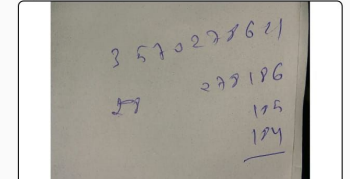 3570278621
278186
28 185
184